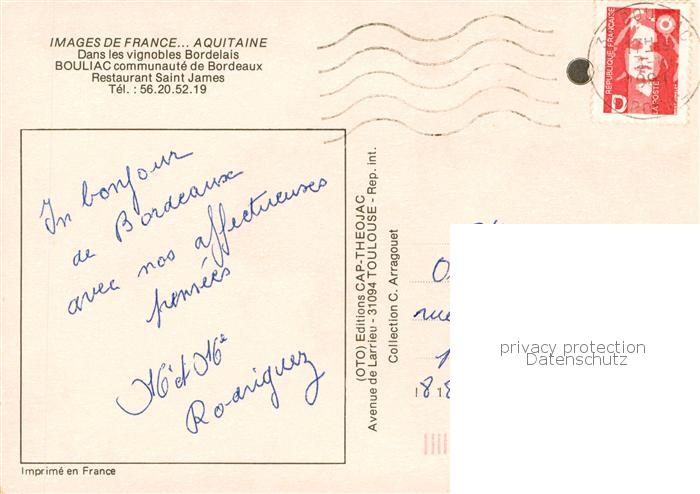 IMAGES DE FRANCE... AQUITAINE
Dans les vignobles Bordelais
BOULIAC communauté de Bordeaux
Restaurant Saint James
Tél. : 56.20.52.19
Un bonjour
de Bordeaux
avec nos affectueuses
pensées
M et Me
Rodriguez
Imprimé en France
(OTO) Editions CAP-THEOJAC
Avenue de Larrieu - 31094 TOULOUSE - Rep. int.
Collection C. Arragouet
REPUBLIQUE FRANÇAISE
D
LA POSTE
rue
88
privacy protection
Datenschutz